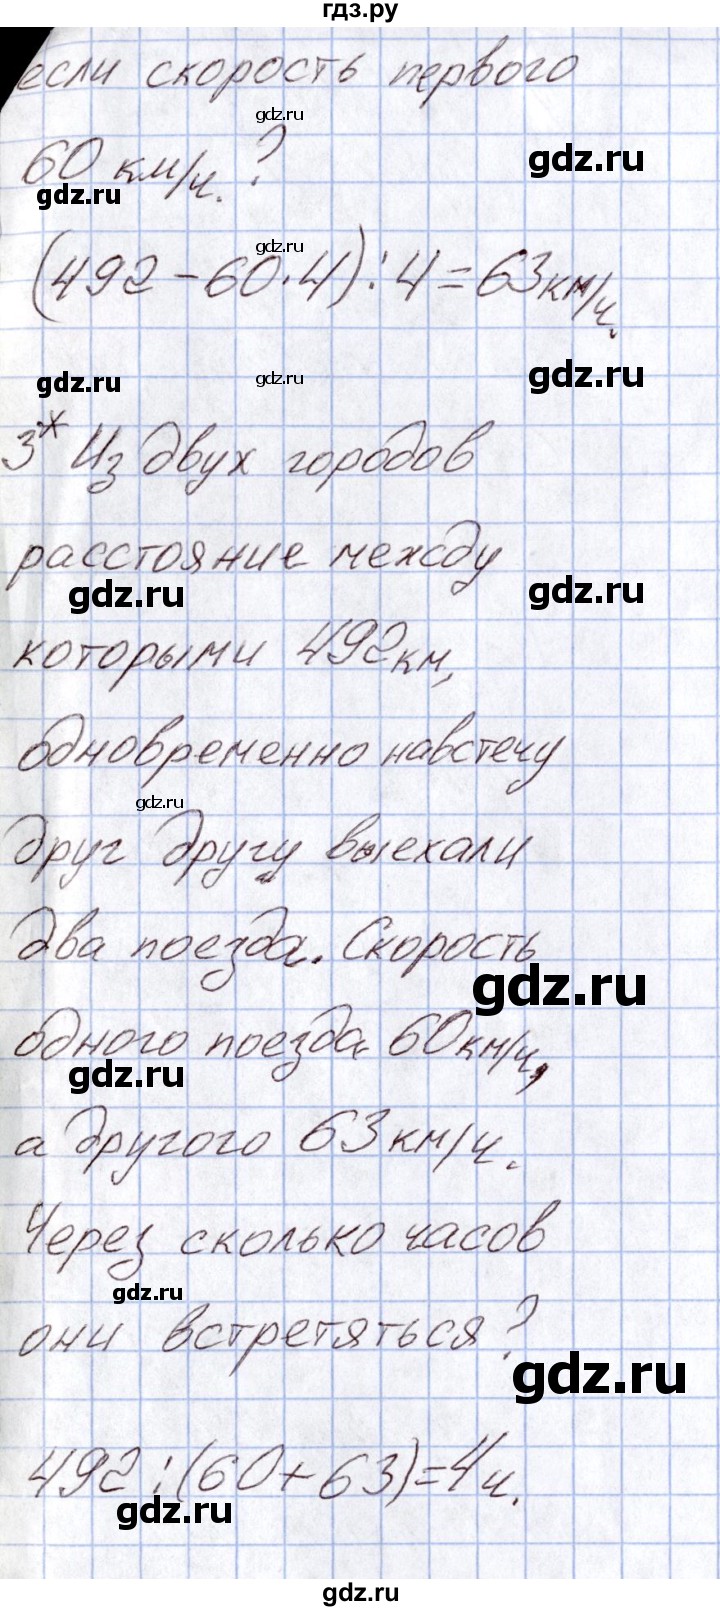 гдз.ру
если скорость первого
gdz.ru
60 км/ч.?
gdz.ru
gdz.ru
(492-60·4):4=63км/ч.
gdz.ru
gdz.ru
gdz.ru
gdz.ru
3* Из двух городов
расстояние между
gdz.ru
gdz.ru
которыми 492км,
одновременно навстечу
gdz.ru
друг другу выехали
два поезда. Скорость
gdz.ru
одного поезда 60км/ч,
gdz.ru
а другого 63км/ч.
Через сколько часов
gdz.ru
они встретяться?
gdz.ru
492:(60+63)=4ч.
gdz.ru
gdz.ru